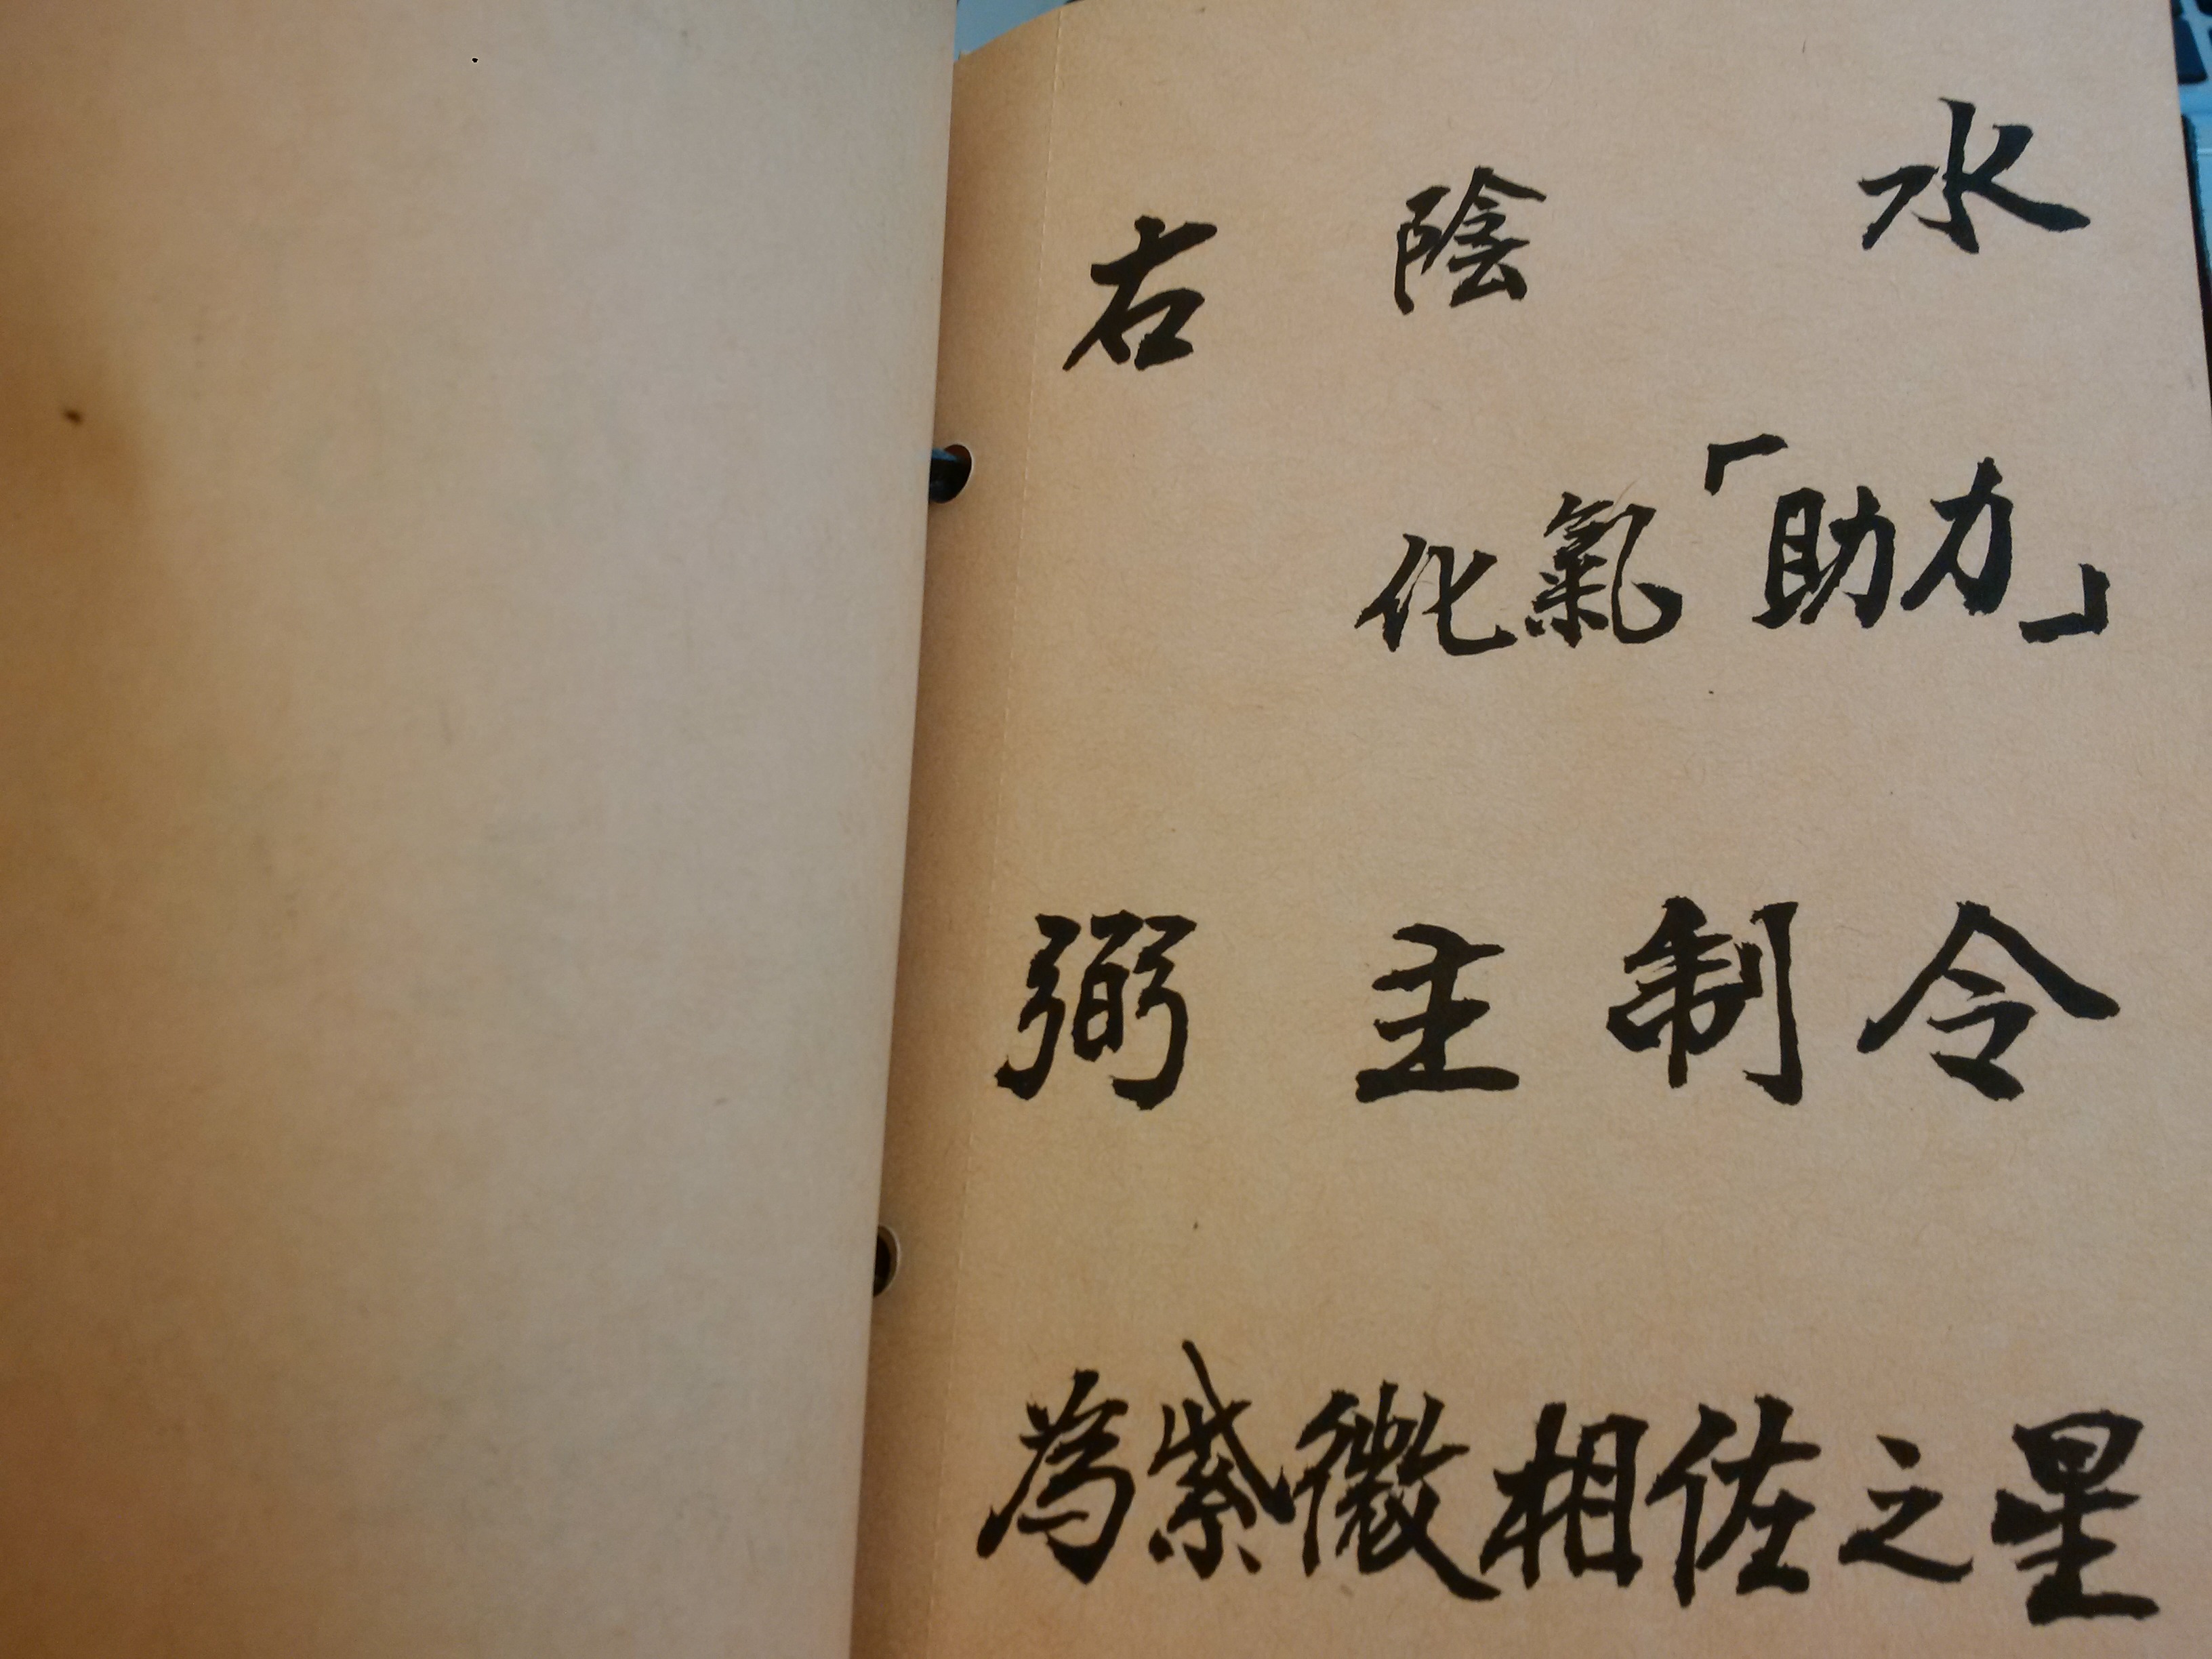 右 陰 水
化氣「助力」
弼 主制令
為紫微相佐之星